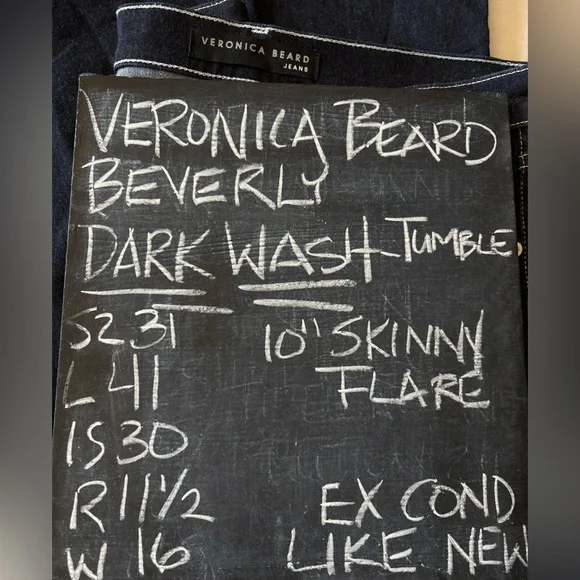 VERONICA BEARD
JEANS
VERONICA BEARD
BEVERLY
DARK WASH TUMBLE
SZ 31 10" SKINNY
L 41 FLARE
IS 30
R 11 1/2 EX COND
W 16 LIKE NEW